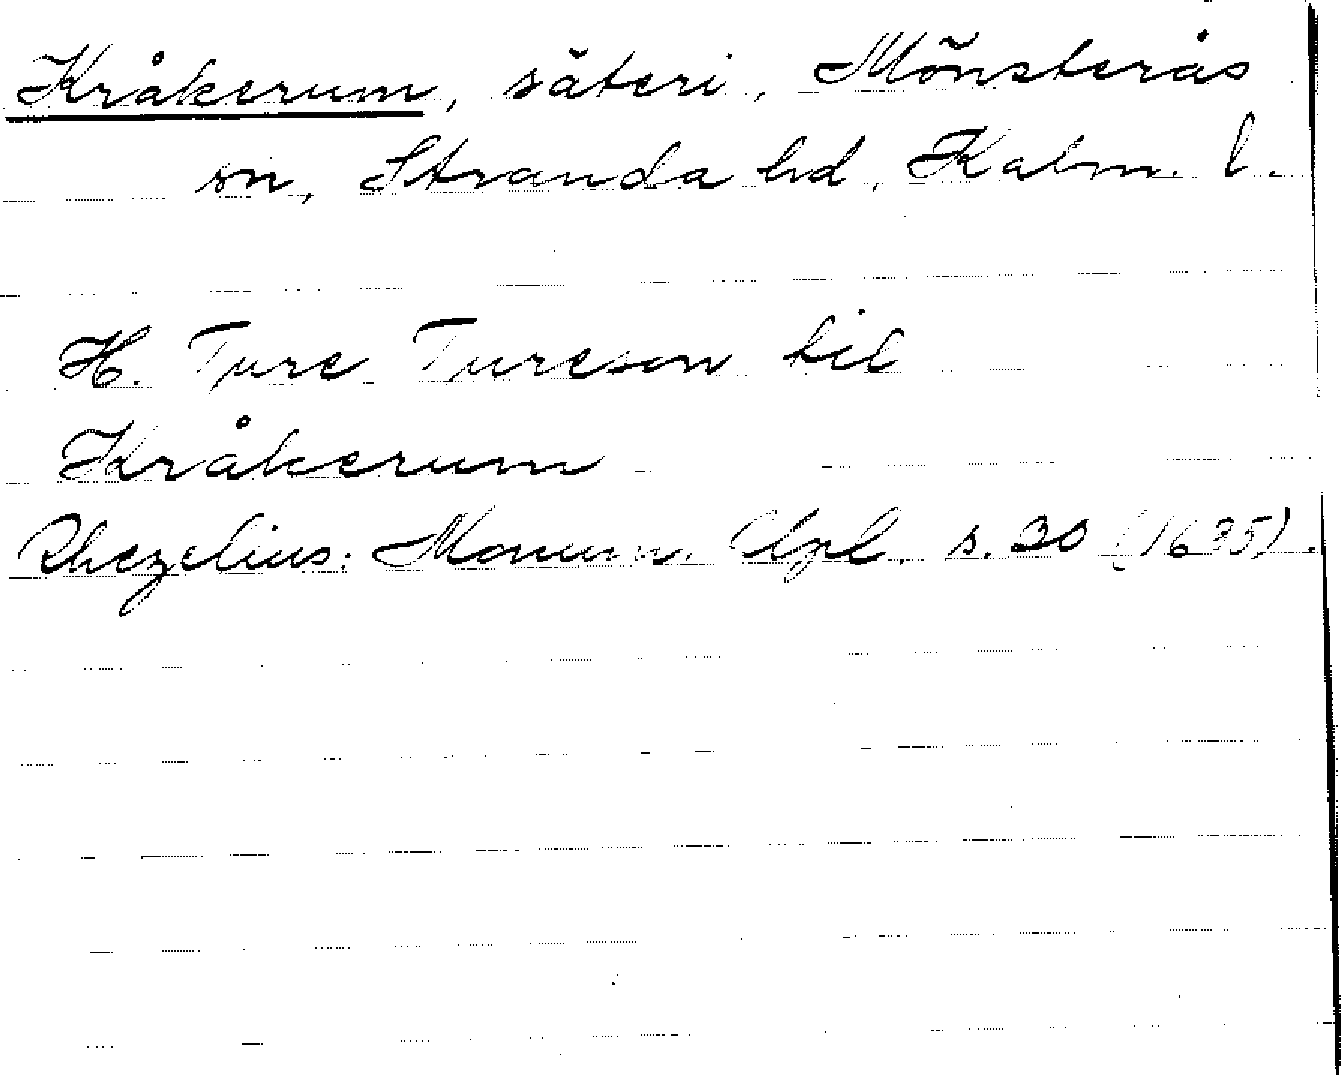 Kråkerum, säteri, Mönsterås
sn, Stranda hd, Kalm. l.
H. Ture Tureson til
Kråkerum
Rhezelius: Monum. Upl. s. 30 (1635).